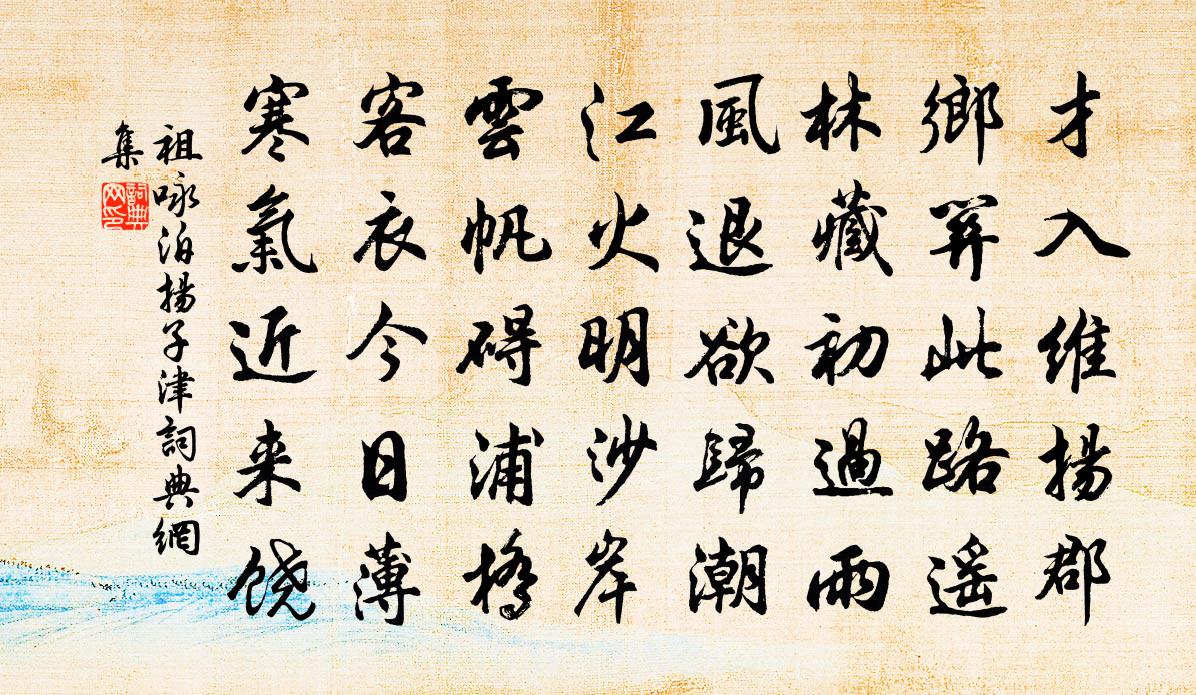 才入維揚郡
鄉關此路遥
林藏初過雨
風退欲歸潮
江火明沙岸
雲帆碍浦橋
客衣今日薄
寒氣近来饶
祖咏泊揚子津詞典網
集
詞典网印